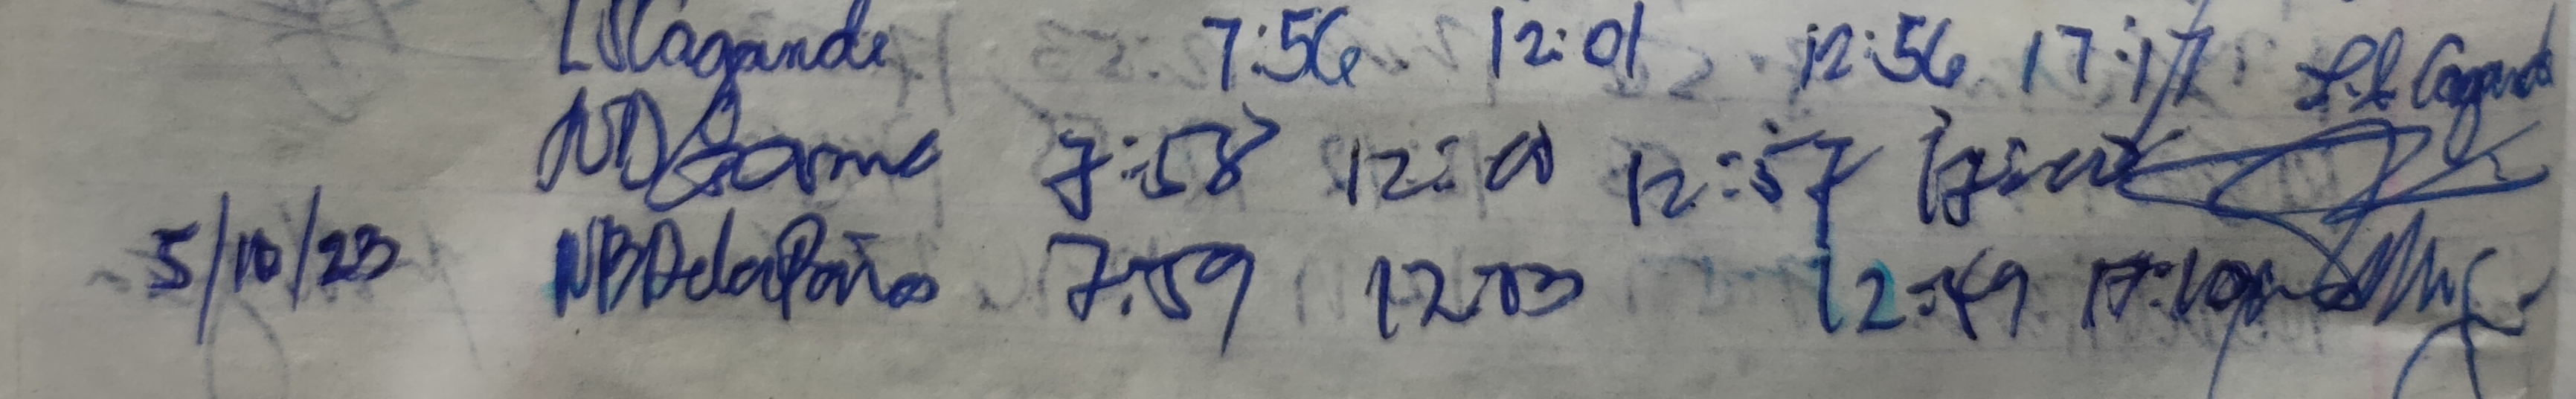 LSCagande 7:56 12:01 12:56 17:17 L.S. Cagande
7:58 12:01 12:57
5/10/23 NBDelaPeña 7:59 12:03 12:49 17:10